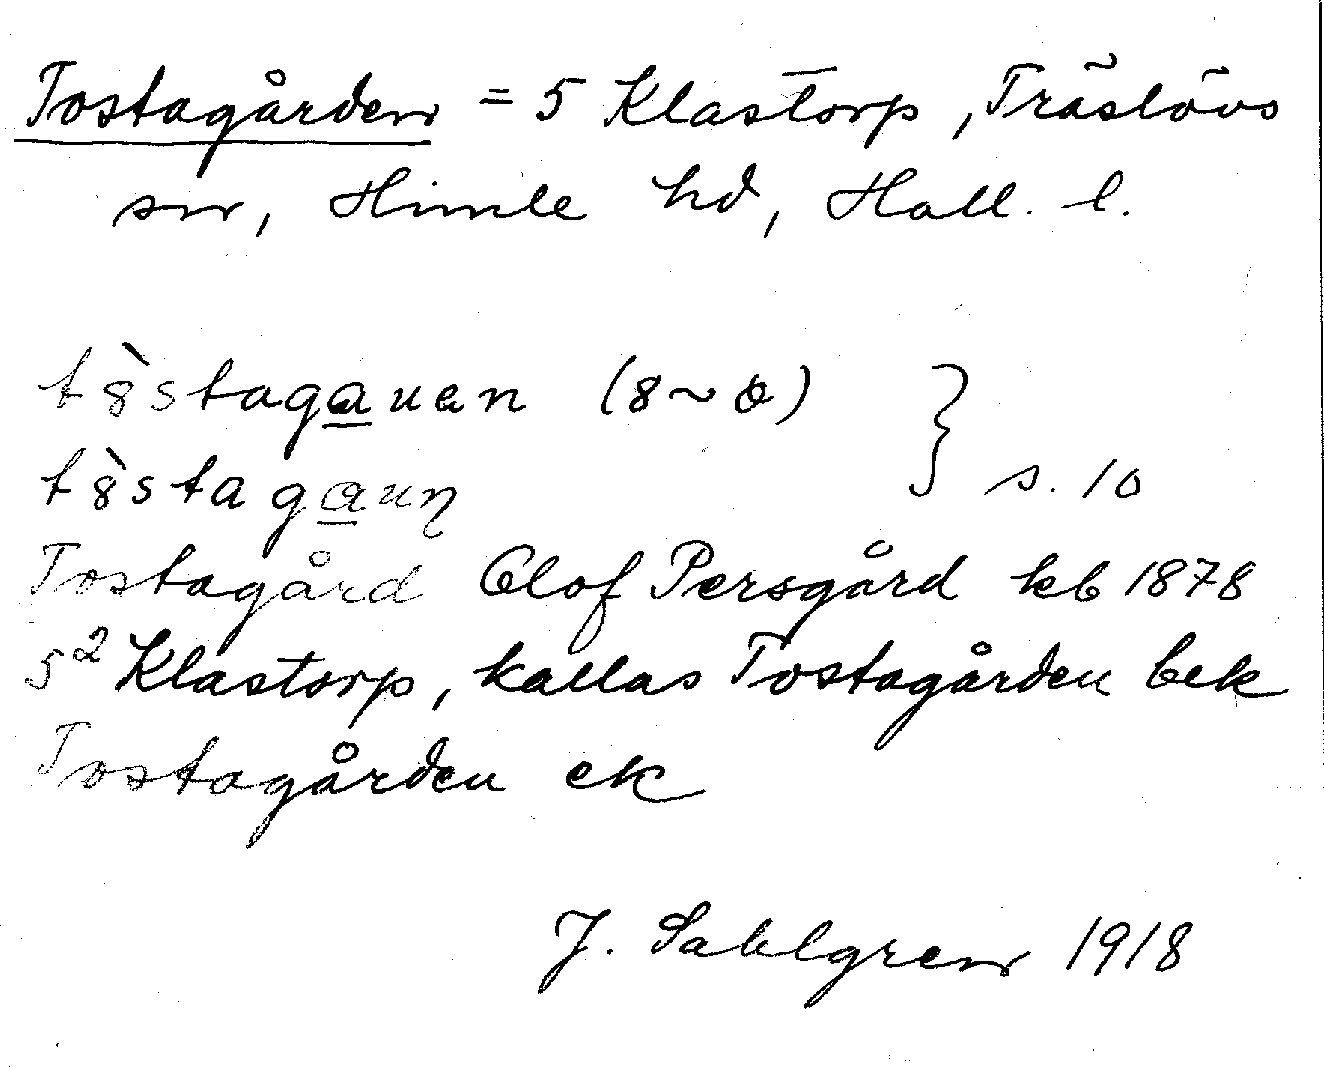 Tostagården = 5 Klastorp, Träslövs
sn, Himle hd, Hall. l.
t8̀stagauen (8~ɵ) } s. 10
t8̀stagauṇ
Tostagård Olof Persgård kb 1878
5² Klastorp, kallas Tostagården bek
Tostagården ek
J. Sahlgren 1918